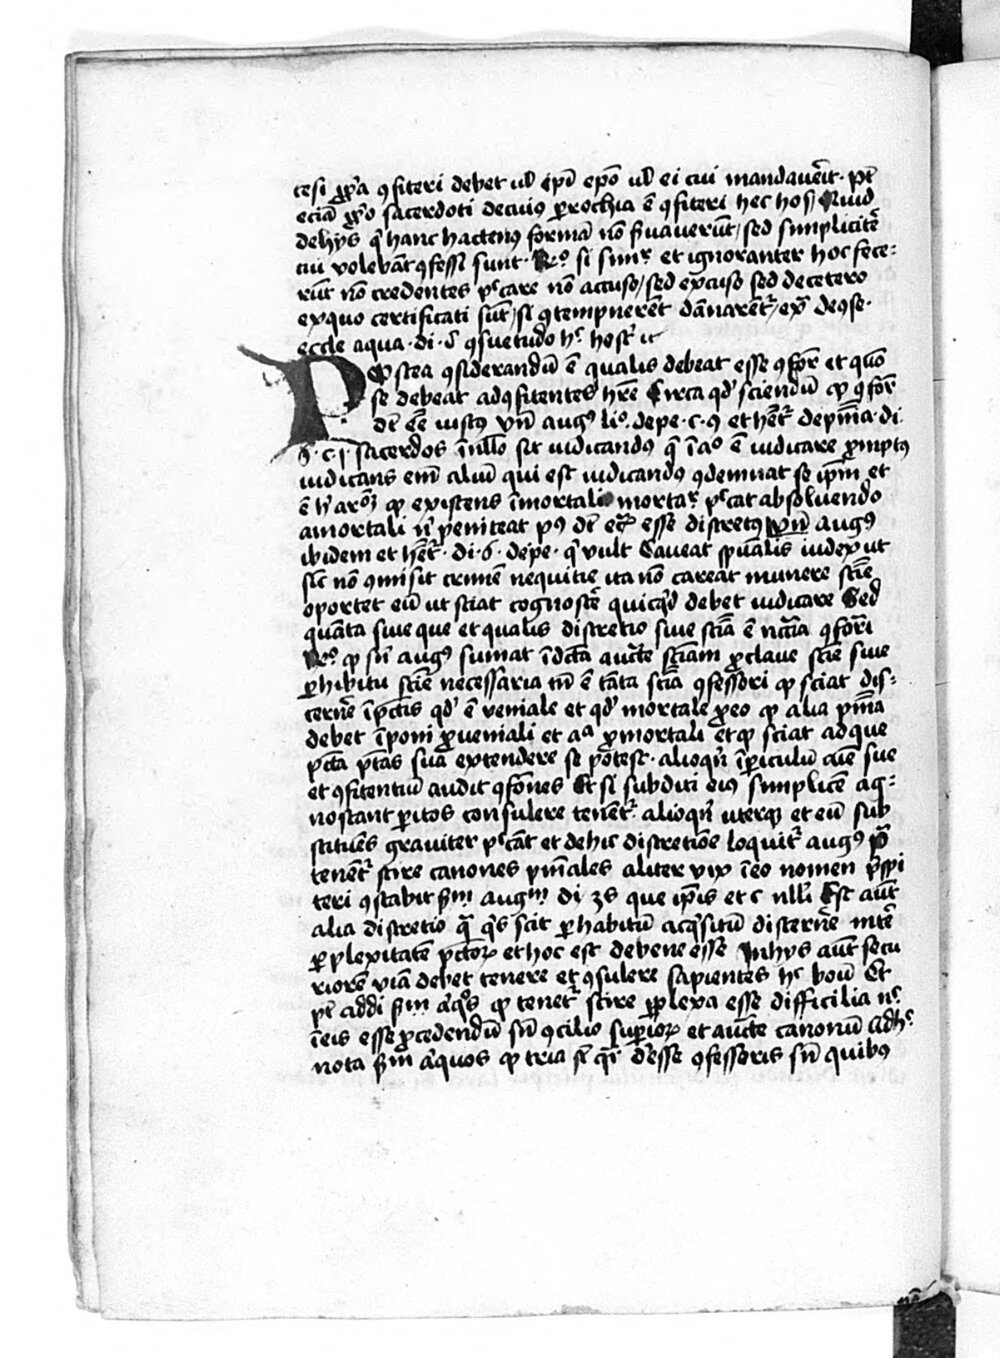 cesi gͦꝰa ꝯfiteri debet ul̕ ip̄i ep̄o ul̕ ei cui mandaverit· pt̄
eciā gͦꝰo sacerdoti de cuius ꝑrochia ē ꝯfiteri hec hos Quid
de hys q̇ hanc hactenꝰ formā nō ẜvaverūt / sed simpliciter
cui volebāt ꝯfessi sunt· Rͦ· si simꝛ et ignoranter hoc fece=
rūt nō credentes pͨcare nō accuso / sed excuso sed de cetero
ex quo certificati sūt / si ꝯtempnerēt dānarent᷑ / exᵃ de ꝯse·
eccle aqua· di· ꝯsvetudo hͨ hosͭ
Postea ꝯsiderandū ē qualis debeat esse ꝯfor̄ et quō
se debeat ad ꝯfitentes hr̄e Circa qd̕ sciendū ꝙ ꝯfor̄
dꝫ eē iustꝰ vn̄ augꝰ li° de pe· c· et hēt᷑ de pnīa· di·
6· c· 1· sacerdos ī nullo sit iudicandꝰ q̇ ī aͦ ē iudicare ꝓmptꝰ
iudicans em̄ aliū qui est iudicandꝰ ꝯdemnat se ip̄m et
ē ꝙ existens ī mortali mortaꝛ pͨcat absolvendo
a mortali n̕ peniteat pꝰ dꝫ ec̄ esse discretꝰ vn̄ augꝰ
ibidem et hēt᷑· di· 6· de pe· q̇ vult Caveat spūalis iudex ut
sic̄ nō ꝯmisit crimē nequitie ita nō careat munere scīe
oportet eū ut sciat cognoscē quicq̇d debet iudicare Sed
quāta sive que et qualis discretio sive scīa ē nccīa ꝯfori
Rͦ· ꝙ sn̄ augꝰ sumat ī dc̄a aucte scīam ꝓ clave scīe sive
ꝑ hibitu scīe necessaria tn̄ ē tāta scīa ꝯfessori ꝙ sciat dis=
cernē ī pctīs qd̕ ē veniale et qd̕ mortale ꝓ eo ꝙ alia pnīa
debet īponi ꝓ veniali et aͣ ꝓ mortali et ꝙ sciat ad que
pctā ptās sua extendere se potest· alioqn̄ ī ꝑiculū aīe sue
et ꝯfitentiū audit ꝯfōnes Et si subditi eiꝰ simplicē ag=
noscant ꝑitos consulere tenent᷑· alioqn̄ uterqꝫ et eū sub
stituēs graviter pͨcāt et de hac discretiōe loquit᷑ augꝰ
tenent᷑ scire canones pnīales aliter vix ī eo nomen p̄sbi
teri ꝯstabit ẜm augm̄ di 38 que ip̄is et c nulli Est aūt
alia discretio q̄ q̇s scit ꝑ habitū acq̇sitū discernē inter
ꝑplexitatē pctōꝝ et hoc est de bene esse In hys aūt secu
riorē viā debet tenere et ꝯsulere sapientes hͨ bonū Et
pt̄ addi ẜm aq̇ꝰs ꝙ tenet᷑ scire ꝑplexa esse difficilia nͨ
ī eis esse ꝓcedendū sn̄ ꝯcilio superioꝝ et aucte canonū Adhͨ
nota ẜm aq̇uos ꝙ tria sͭ q̇ dꝫ esse ꝯfessoris sn̄ quibꝰ